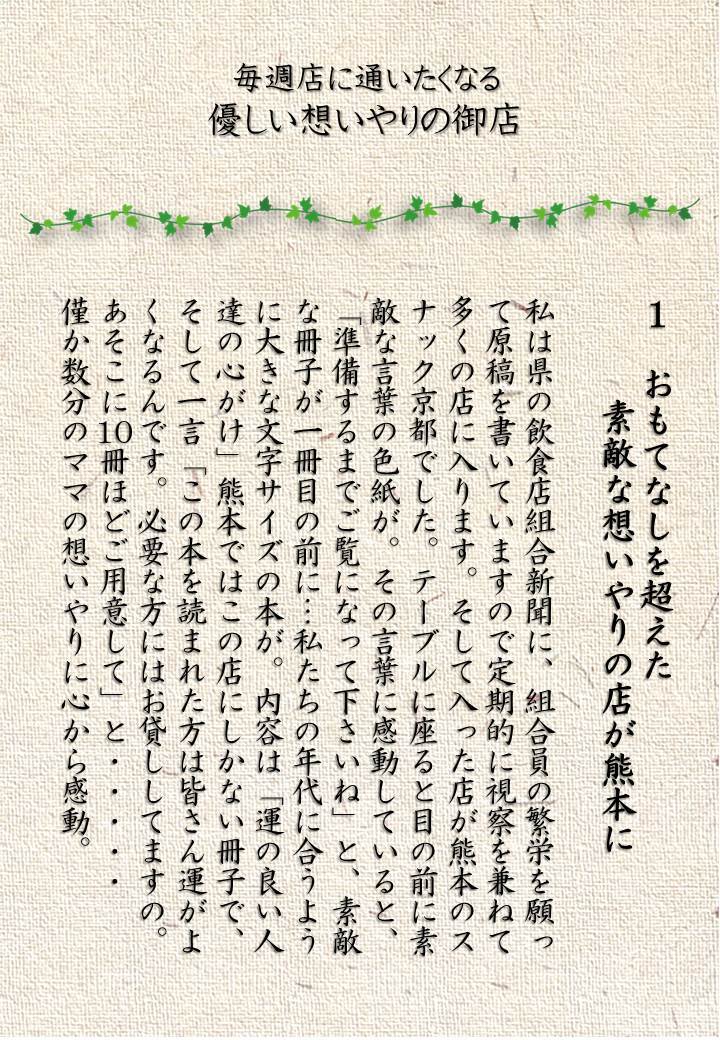 毎週店に通いたくなる
優しい想いやりの御店
1 おもてなしを超えた
素敵な想いやりの店が熊本に
私は県の飲食店組合新聞に、組合員の繁栄を願っ
て原稿を書いていますので定期的に視察を兼ねて
多くの店に入ります。そして入った店が熊本のス
ナック京都でした。テーブルに座ると目の前に素
敵な言葉の色紙が。その言葉に感動していると、
「準備するまでご覧になって下さいね」と、素敵
な冊子が一冊目の前に…私たちの年代に合うよう
に大きな文字サイズの本が。内容は「運の良い人
達の心がけ」熊本ではこの店にしかない冊子で、
そして一言「この本を読まれた方は皆さん運がよ
くなるんです。必要な方にはお貸ししてますの。
あそこに10冊ほどご用意して」と・・・・・
僅か数分のママの想いやりに心から感動。